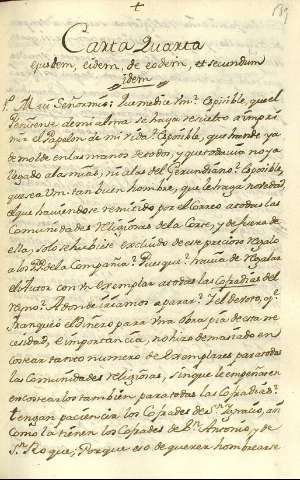 Carta Quarta
ejusdem, eidem, de eodem, et secundum
idem
Mui Señor mio: Que me dice Vm.? Es posible, que el
Penitense de mi alma se haya resuelto a impri-
mir el Papelon de mi vida? Es posible, que ande ya
de molde en las manos de todos, y que todavia no ya
llegado a las mias, ni a las del Gerundiano? Es posible,
que sea Vm. tan buen hombre, que le haga novedad,
el que haviendose remitido por el Correo a todas las
Comunidades Religiosas de la Corte, y de fuera de
ella, solo se hubiese excluido de este precioso regalo
a los PP. de la Compañia? Pues que? havia de regalar
el Autor con un Exemplar a todas las Cofradias del
reyno? A donde iriamos a parar? Y el devoto, q.e
franqueò el dinero para una obra pia de esta ne-
cesidad, e importancia, no hizo demasiado en
costear tanto numero de Exemplares para todas
las Comunidades religiosas, sin que le empeñasen
en costearlos tambien para todas las Cofradias?
tengan paciencia los Cofrades de S.n Ignacio, asi
como la tienen los Cofrades de S.n Antonio, y de
S.n Roque; Porque eso de querer hombrearse